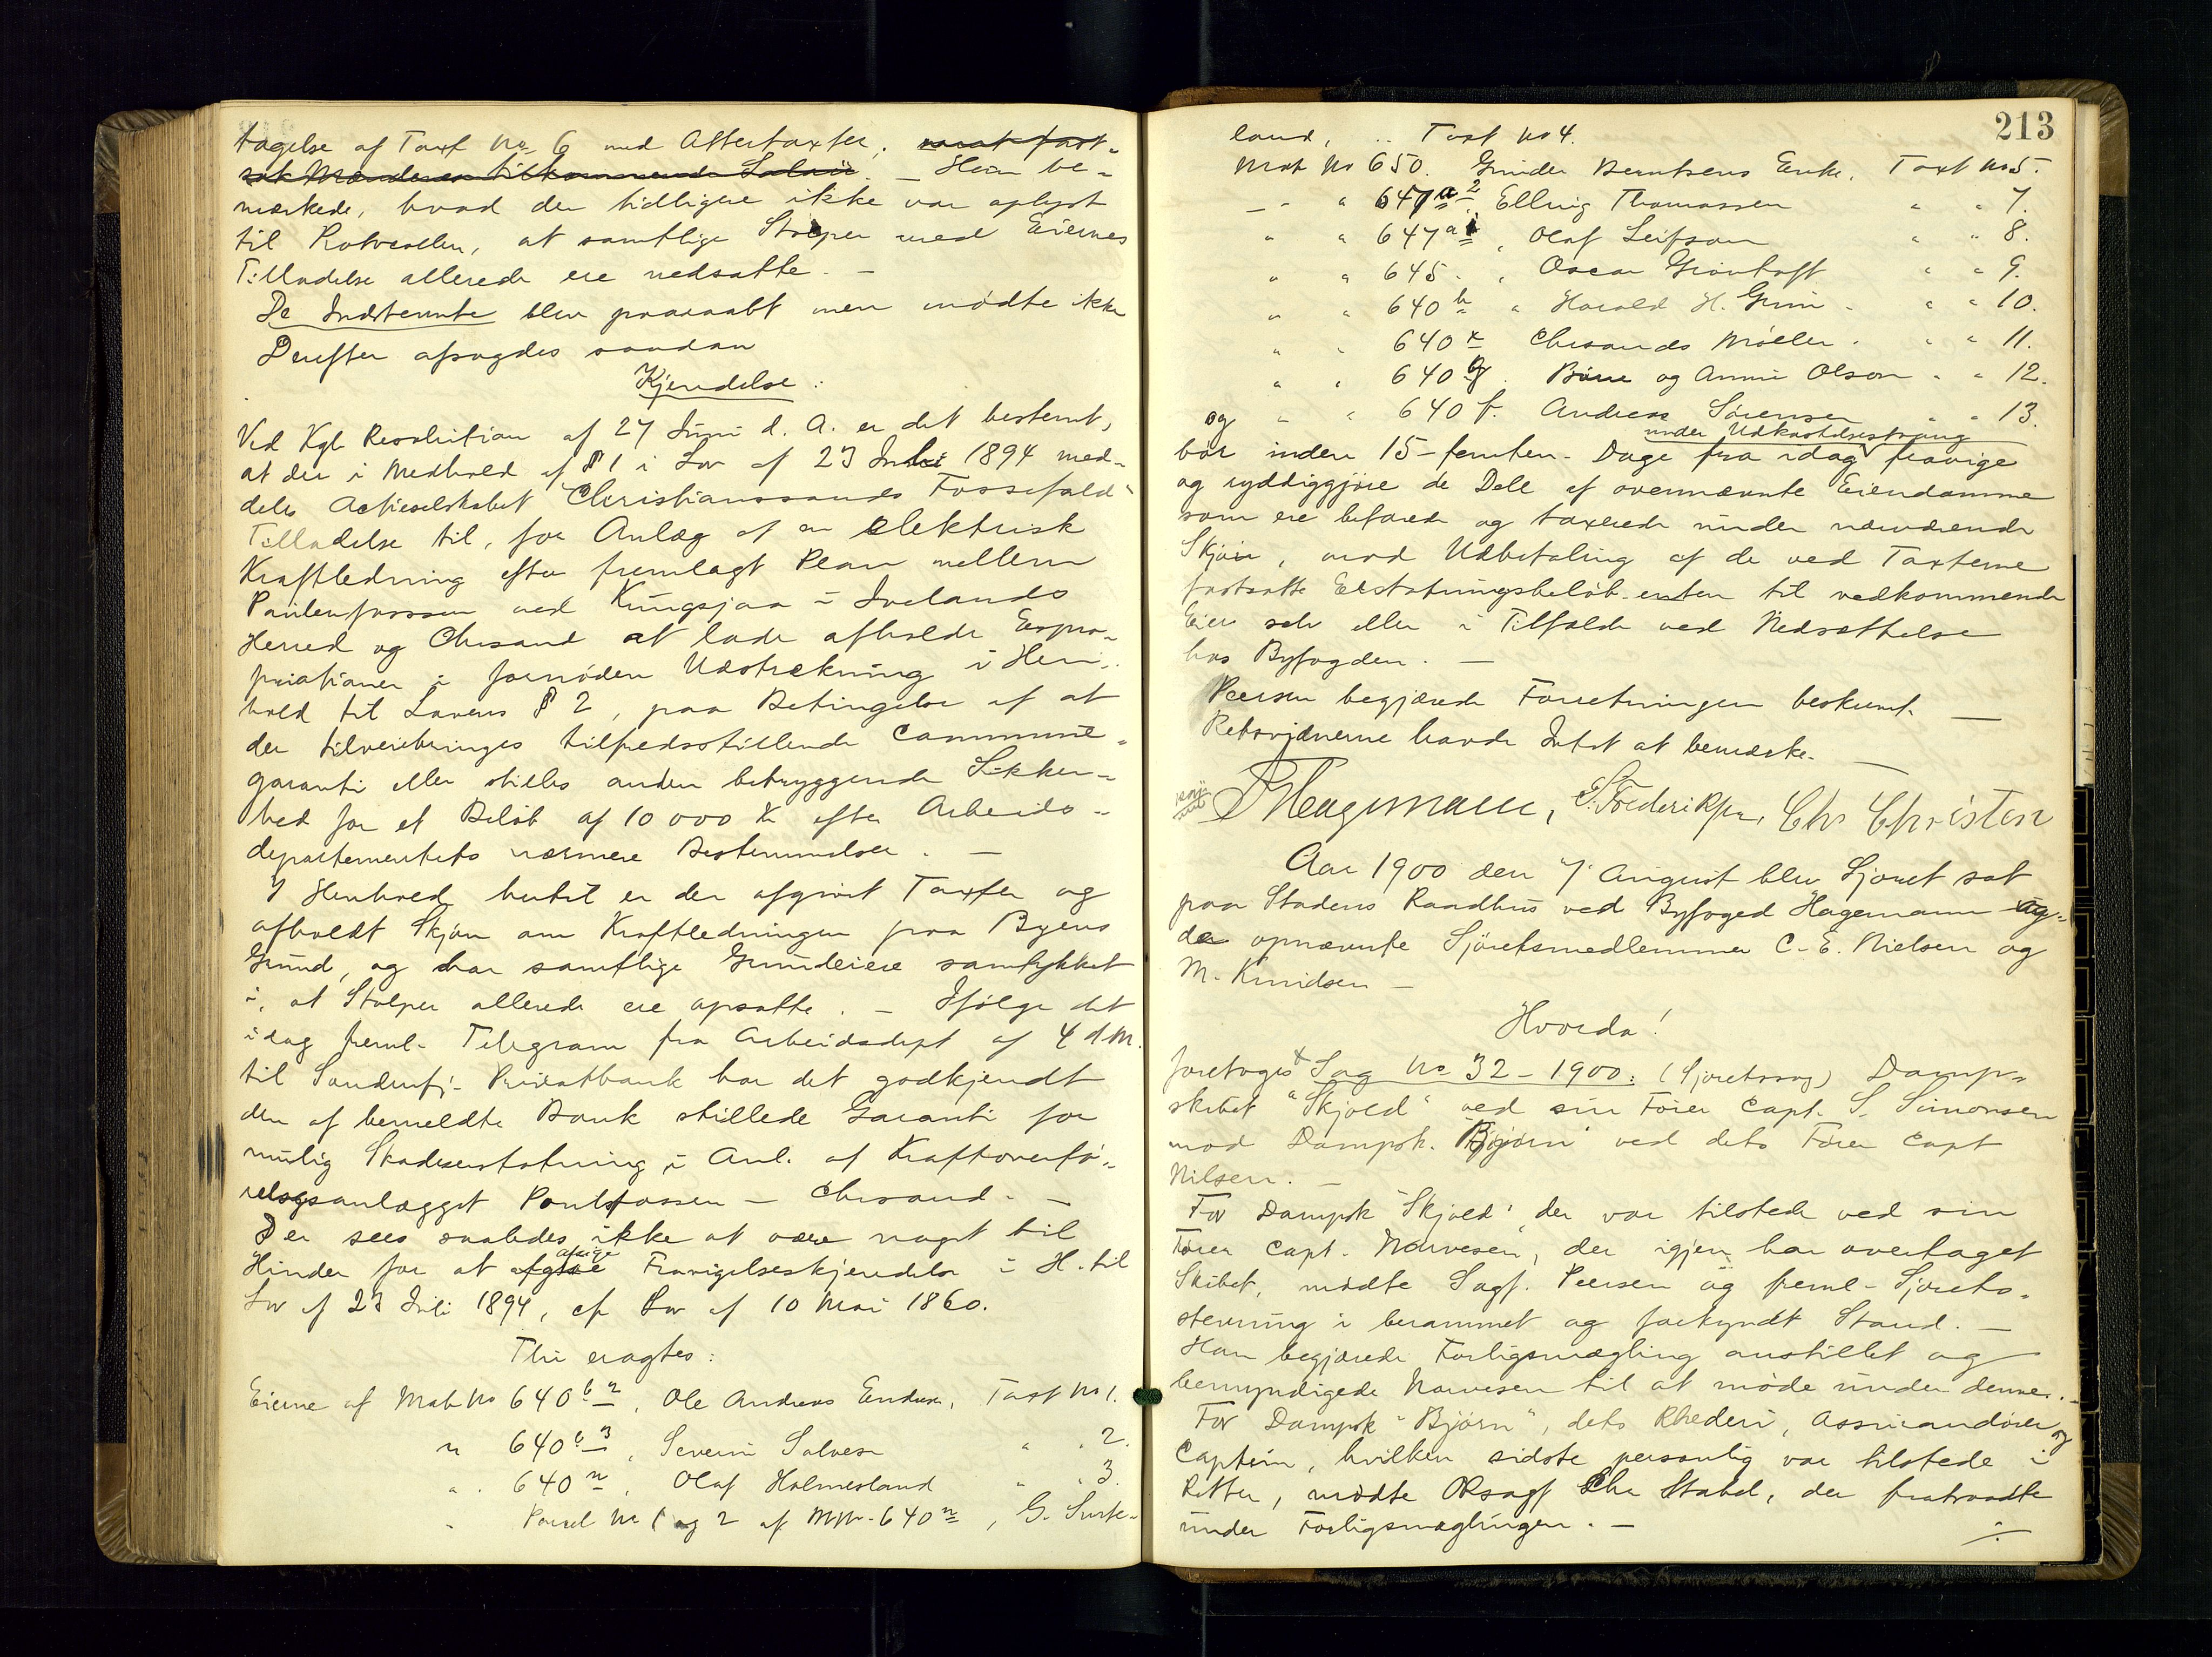 tagelse af Taxt No 6 med Aftertaxter, samt fast-
sat Mændenes tilkommende Salair. – Han be-
mærkede, hvad der tidligere ikke var oplyst
til Protocollen, at samtlige Stolper med Eiernes
Tilladelse allerede ere nedsatte. –
De Indstevnte blev paaraabt men mødte ikke
Derefter afsagdes saadan
Kjendelse:
Ved Kgl Resolution af 27 Juni d. A. er det bestemt,
at der i Medhold af § 1 i Lov af 23 Juli 1894 med-
deles Actieselskabet "Christianssands Fossefald"
Tilladelse til, for Anlæg af en elektrisk
Kraftledning efter fremlagt Plan mellem
Paulenfossen ved Kringsjaa i Ivelands
Herred og Chrsand at lade afholde Expro-
priationer i fornøden Udstrækning i Hen-
hold til Lovens § 2, paa Betingelse af at
der tilveiebringes tilfredsstillende Commune-
garanti eller stilles anden betryggende Sikker-
hed for et Beløb af 10 000 Kr efter Arbeids-
departementets nærmere Bestemmelser. –
I Henhold hertil er der afgivet Taxter og
afholdt Skjøn om Kraftledningen paa Byens
Grund, og har samtlige Grundeiere samtykket
i, at Stolper allerede ere opsatte. – Ifølge det
idag freml. Telegram fra Arbeidsdept af 4 d M.
til Søndenfj. Privatbank har det godkjendt
den af bemeldte Bank stillede Garanti for
mulig Skadeserstatning i Anl. af Kraftoverfø-
relsesanlægget Paulfossen – Chrsand. –
Der sees saaledes ikke at være noget til
Hinder for at afgive afsige Fravigelseskjendelse i H. til
Lov af 23 Juli 1894, cfr Lov af 10 Mai 1860.
Thi eragtes:
Eierne af Matr No 640 b 2, Ole Andreas Endresen, Taxt No 1.
" 640 b 3, Severin Salvesen " " 2.
" 640 n, Olaf Holmesland " " 3.
" Parcel No 1 og 2 af M No 640 n, G. Surte-
213
land, .. Taxt No 4.
Matr No 650. Gunder Berntsens Enke, Taxt No 5.
– " " 647 a 2, Ellrig Thomassen " " 7.
" " 647 a 1, Olaf Leifson " " 8.
" " 645. , Oscar Grøntoft " " 9.
" " 640 h " Harald H. Grim - " " 10.
" " 640 x Chrsands Møller. " " 11.
" " 640 g. Børre og Anne Olsen " " 12.
og " " 640 f. Andreas Sørensen " " 13.
under Udkastelsestvang
bør inden 15 – femten – Dage fra idag fravige
og ryddiggjøre de Dele af ovennævnte Eiendomme
som ere befarede og taxerede under nærværende
Skjøn, mod Udbetaling af de ved Taxterne
fastsatte Erstatningsbeløb enten til vedkommende
Eier selv eller i Tilfælde ved Nedsættelse
hos Byfogden. –
Peersen begjærede Forretningen beskreven. –
Retsvidnerne havde Intet at bemærke. –
Hagemann, S. Frederiksen, Chr Christensen
Aar 1900 den 7 August blev Sjøret sat
paa Stadens Raadhus ved Byfoged Hagemann og
de opnævnte Sjøretsmedlemmer C. E. Nielsen og
M. Knudsen –
Hvorda!
foretoges Sag No 32 – 1900: (Sjøretssag) Damp-
skibet "Skjold" ved sin Fører Capt. S. Simonsen
mod Dampsk. "Bjørn" ved dets Fører Capt
Nilsen. –
For Dampsk "Skjold", der var tilstede ved sin
Fører Capt. Narvesen, der igjen har overtaget
Skibet, mødte Sagf. Peersen og freml. Sjørets-
stevning i berammet og forkyndt Stand. –
Han begjærede Forligsmægling anstillet og
bemyndigede Narvesen til at møde under denne. –
For Dampsk "Bjørn", dets Rhederi, Assurandører og
Captein, hvilken sidste personlig var tilstede i
Retten, mødte ORsagf Chr Stabel, der fratraadte
under Forligsmæglingen. –